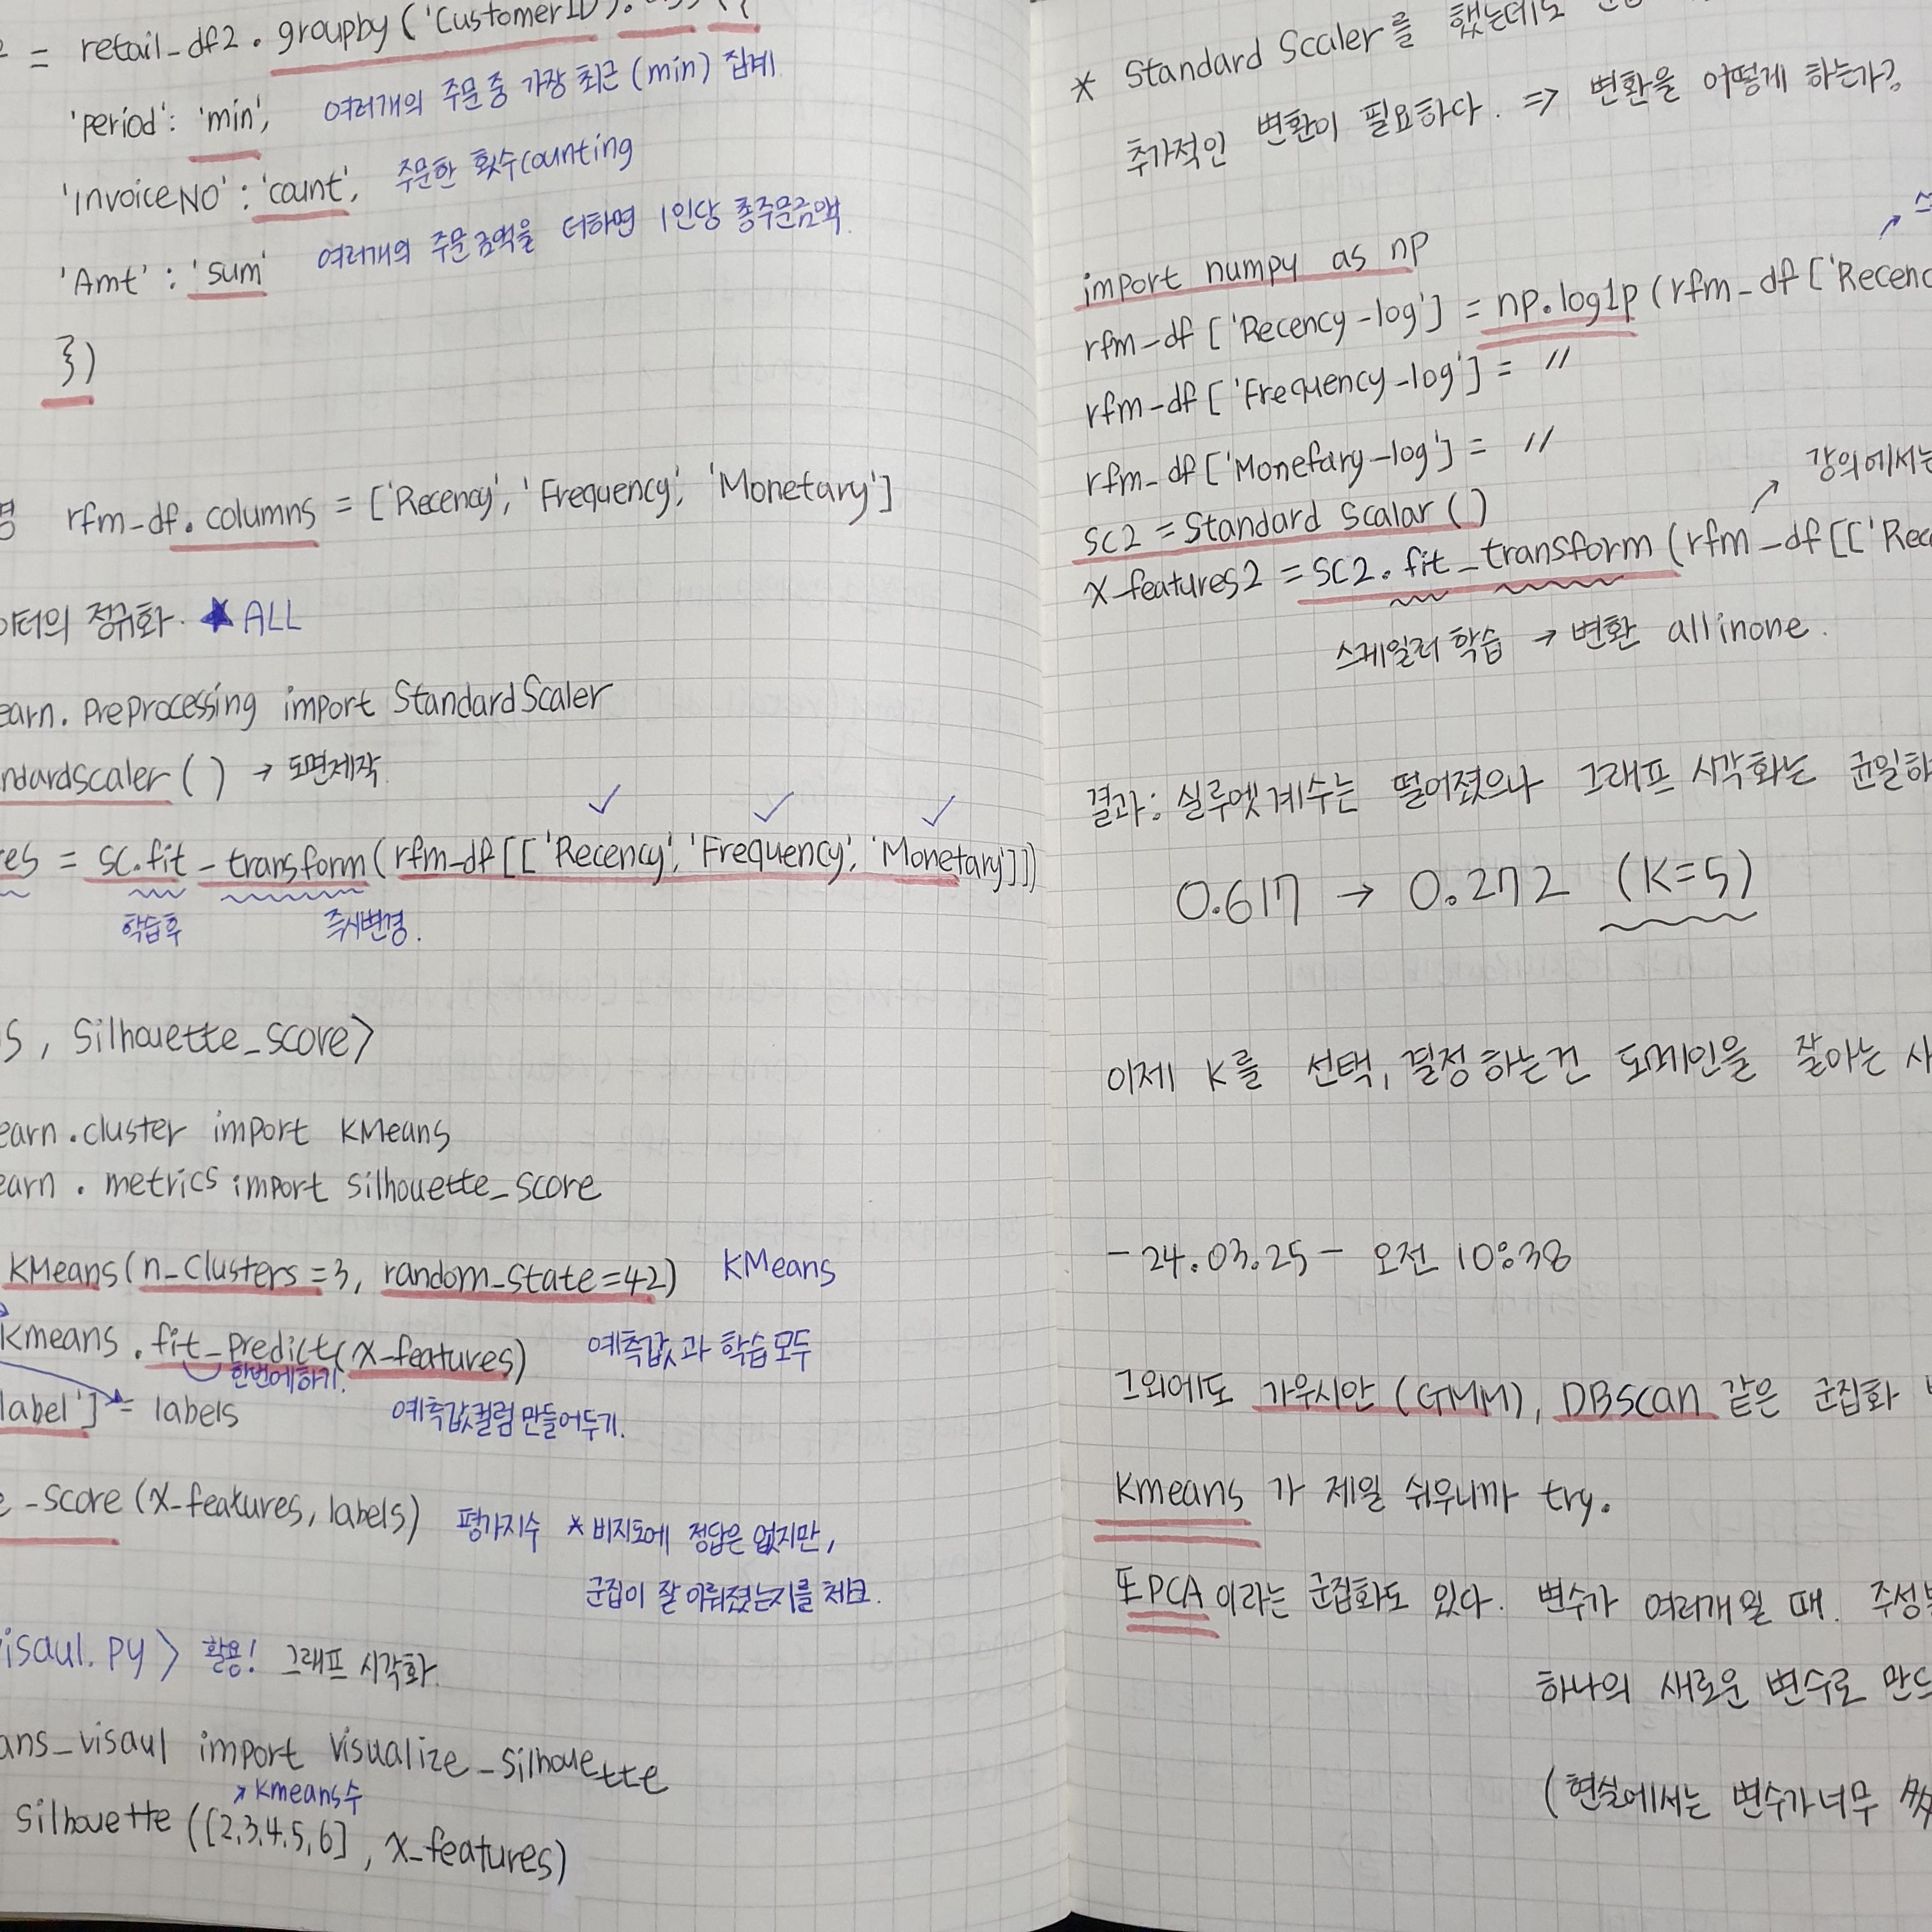 = retail_df2.groupby('CustomerID').
'period': 'min', 여러개의 주문 중 가장 최근(min) 집계
'InvoiceNO': 'count', 주문한 횟수counting
'Amt': 'sum' 여러개의 주문금액을 더하면 1인당 총주문금액.
})
명 rfm_df.columns = ['Recency', 'Frequency', 'Monetary']
이터의 정규화. ★ ALL
earn.preprocessing import StandardScaler
ndardscaler() → 도면제작
res = sc.fit_transform(rfm_df[['Recency', 'Frequency', 'Monetary']])
학습후 즉시변경.
s, Silhouette_score>
earn.cluster import KMeans
earn.metrics import silhouette_score
KMeans(n_clusters=3, random_state=42) KMeans
Kmeans.fit_predict(x_features) 예측값과 학습모두
한번에하기.
label'] = labels 예측값컬럼만들어두기.
e_score(x_features, labels) 평가지수 * 비지도에 정답은 없지만,
군집이 잘 이뤄졌는지를 체크.
isaul.py> 활용! 그래프 시각화.
ans_visaul import visualize_silhouette
↗ Kmeans수
silhouette([2,3,4,5,6], x_features)
* Standard Scaler를 했는데도
추가적인 변환이 필요하다. => 변환을 어떻게 하는가?
import numpy as np
rfm_df['Recency-log'] = np.log1p(rfm_df['Recenc
rfm_df['Frequency-log'] = "
rfm_df['Monefary-log'] = "
강의에서는
sc2 = Standard Scalar()
x_features2 = sc2.fit_transform(rfm_df[['Rec
스케일러 학습 → 변환 allinone.
결과: 실루엣계수는 떨어졌으나 그래프 시각화는 균일하
0.617 → 0.272 (K=5)
이제 K를 선택, 결정하는건 도메인을 잘아는 사
-24.03.25- 오전 10:38
그외에도 가우시안(GMM), DBscan 같은 군집화
Kmeans가 제일 쉬우니까 try.
또PCA이라는 군집화도 있다. 변수가 여러개일 때. 주성분
하나의 새로운 변수로 만드
(현실에서는 변수가너무